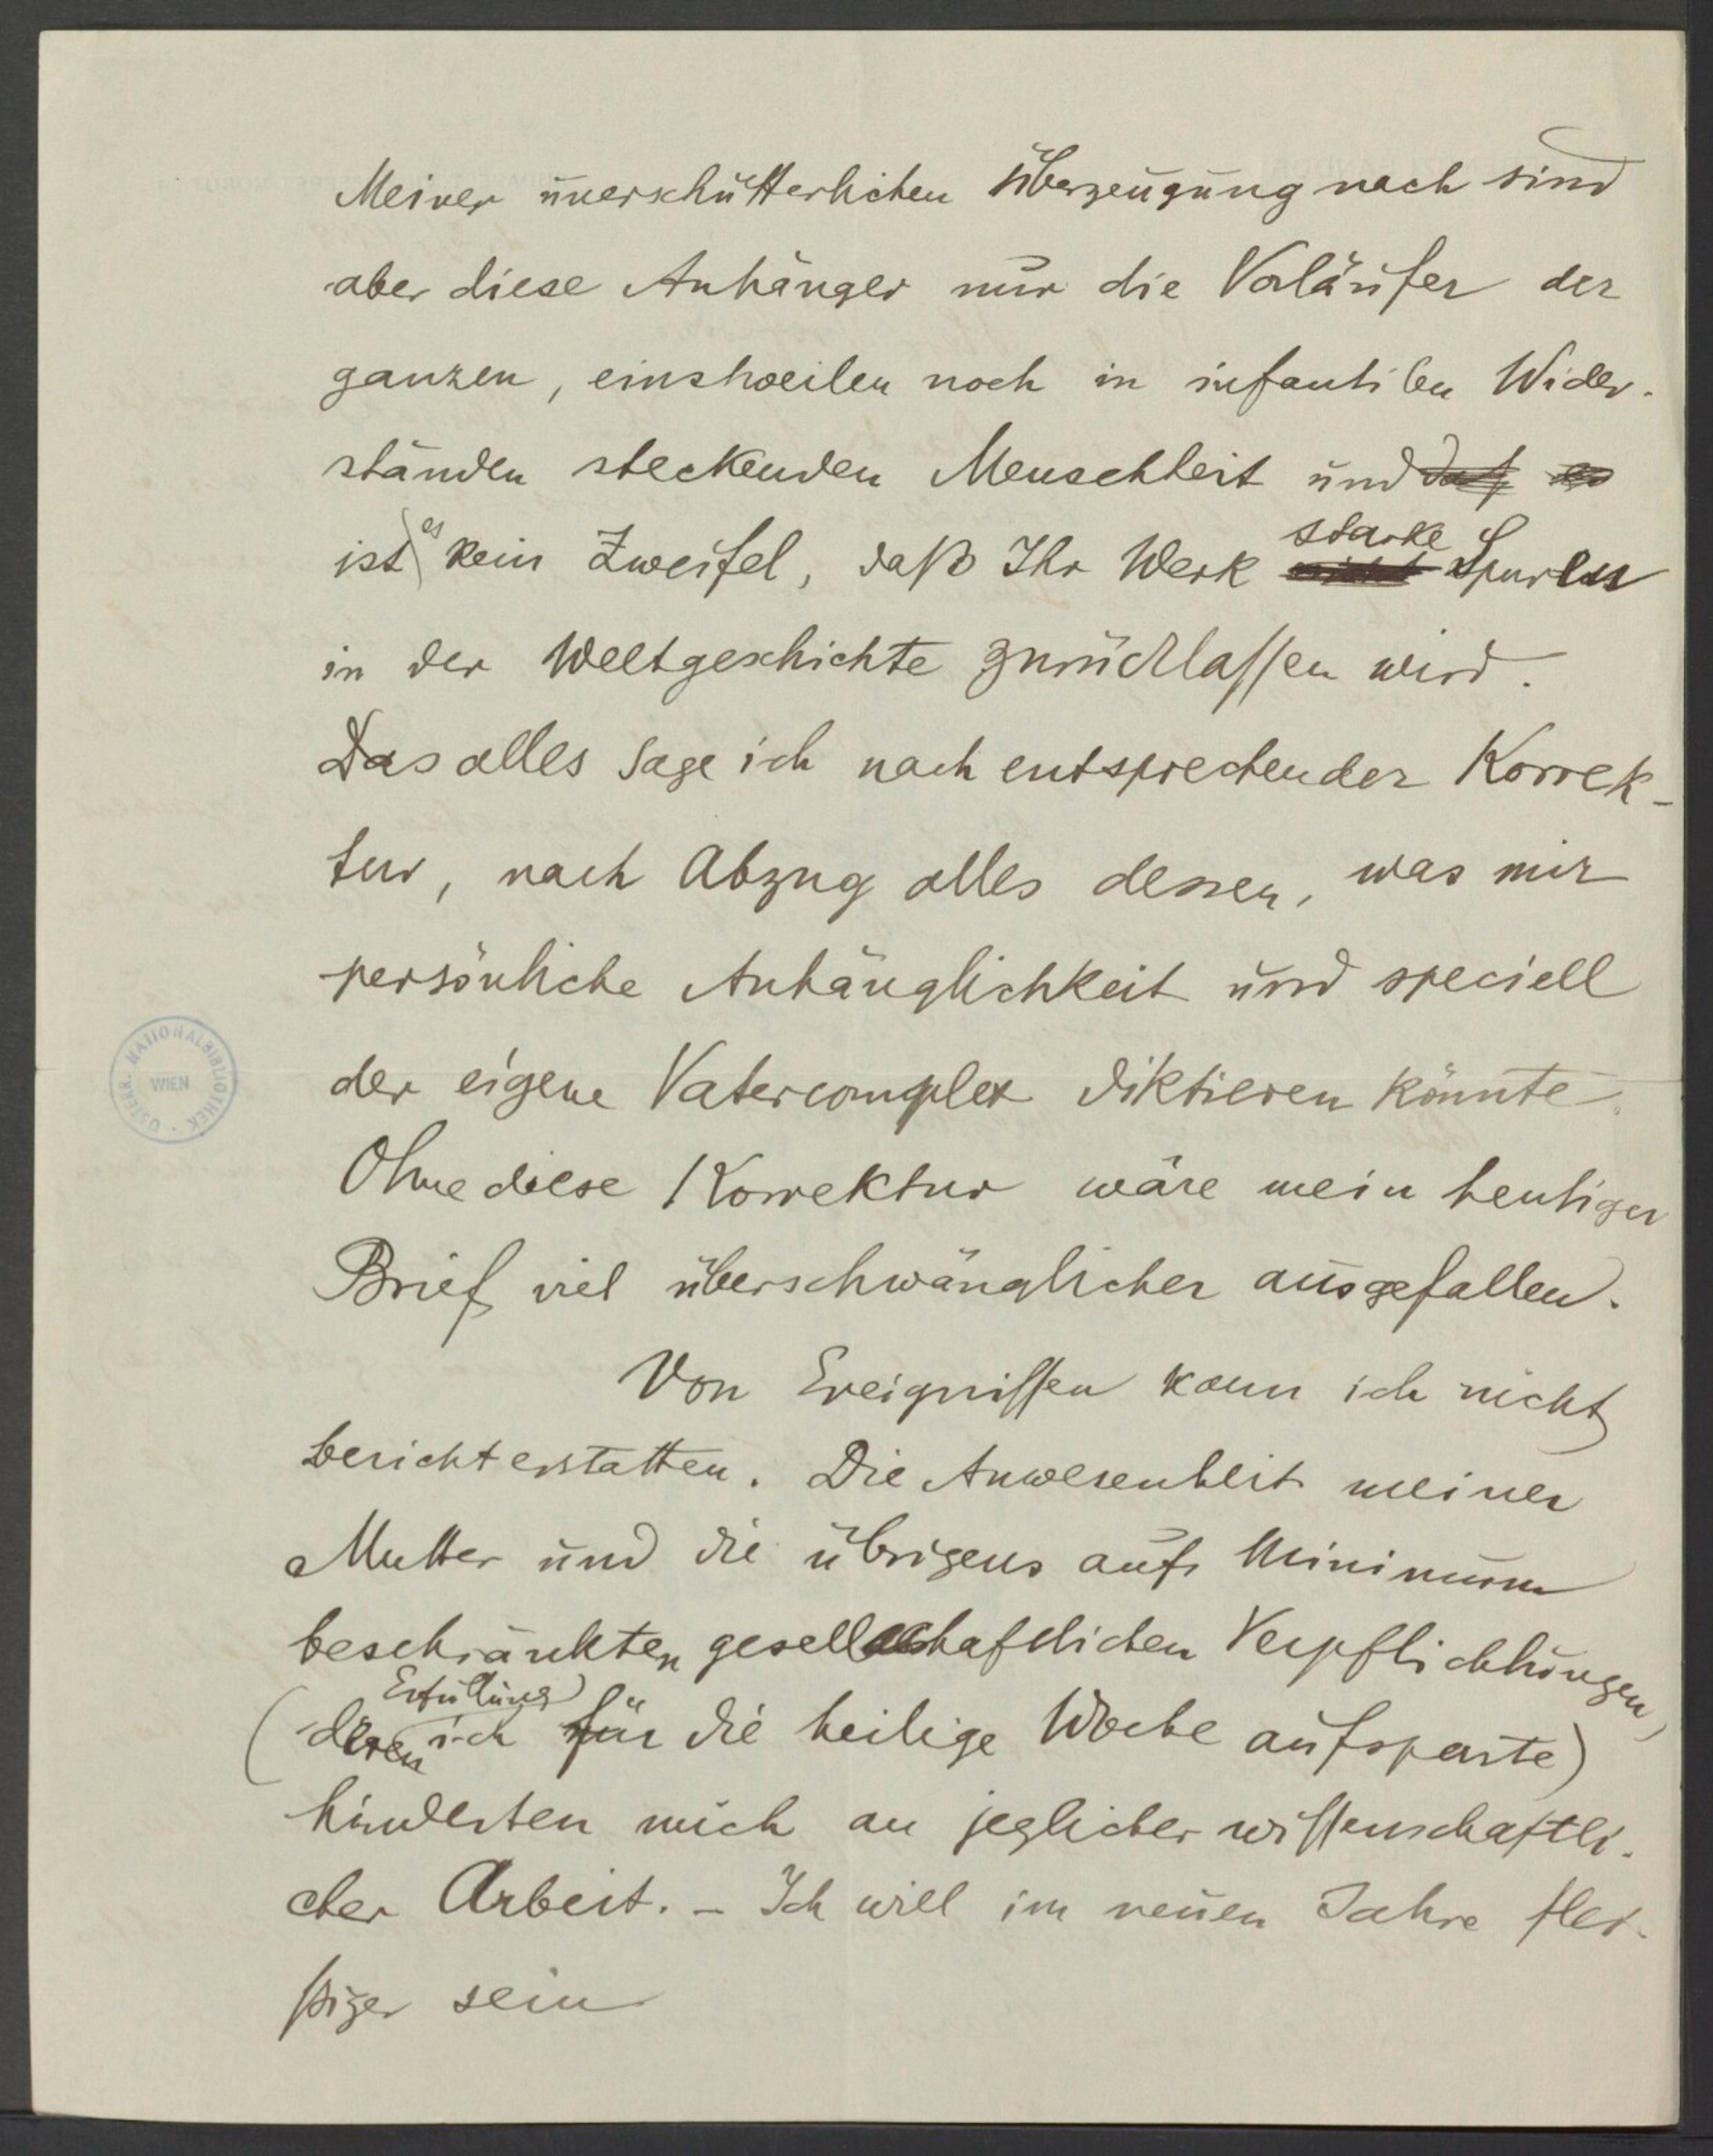 Meiner unerschütterlichen Überzeugung nach sind
aber diese Anhänger nur die Vorläufer der
ganzen, einstweilen noch in infantilen Wider-
ständen steckenden Menschheit und daß es
ist es kein Zweifel, daß Ihr Werk nicht starke Spuren
in der Weltgeschichte zurücklassen wird.
Das alles sage ich nach entsprechender Korrek-
tur, nach Abzug alles dessen, was mir
persönliche Anhänglichkeit und speciell
der eigene Vatercomplex diktieren könnte.
Ohne diese Korrektur wäre mein heutiger
Brief viel überschwänglicher ausgefallen.
Von Ereignissen kann ich nicht
berichterstatten. Die Anwesenheit meiner
Mutter und die übrigens aufs Minimum
beschränkten gesellschaftlichen Verpflichtungen,
(deren Erfüllung ich für die heilige Woche aufsparte)
hinderten mich an jeglicher wissenschaftli-
cher Arbeit. – Ich will im neuen Jahre flei-
ßiger sein
ÖSTERR. NATIONALBIBLIOTHEK
WIEN